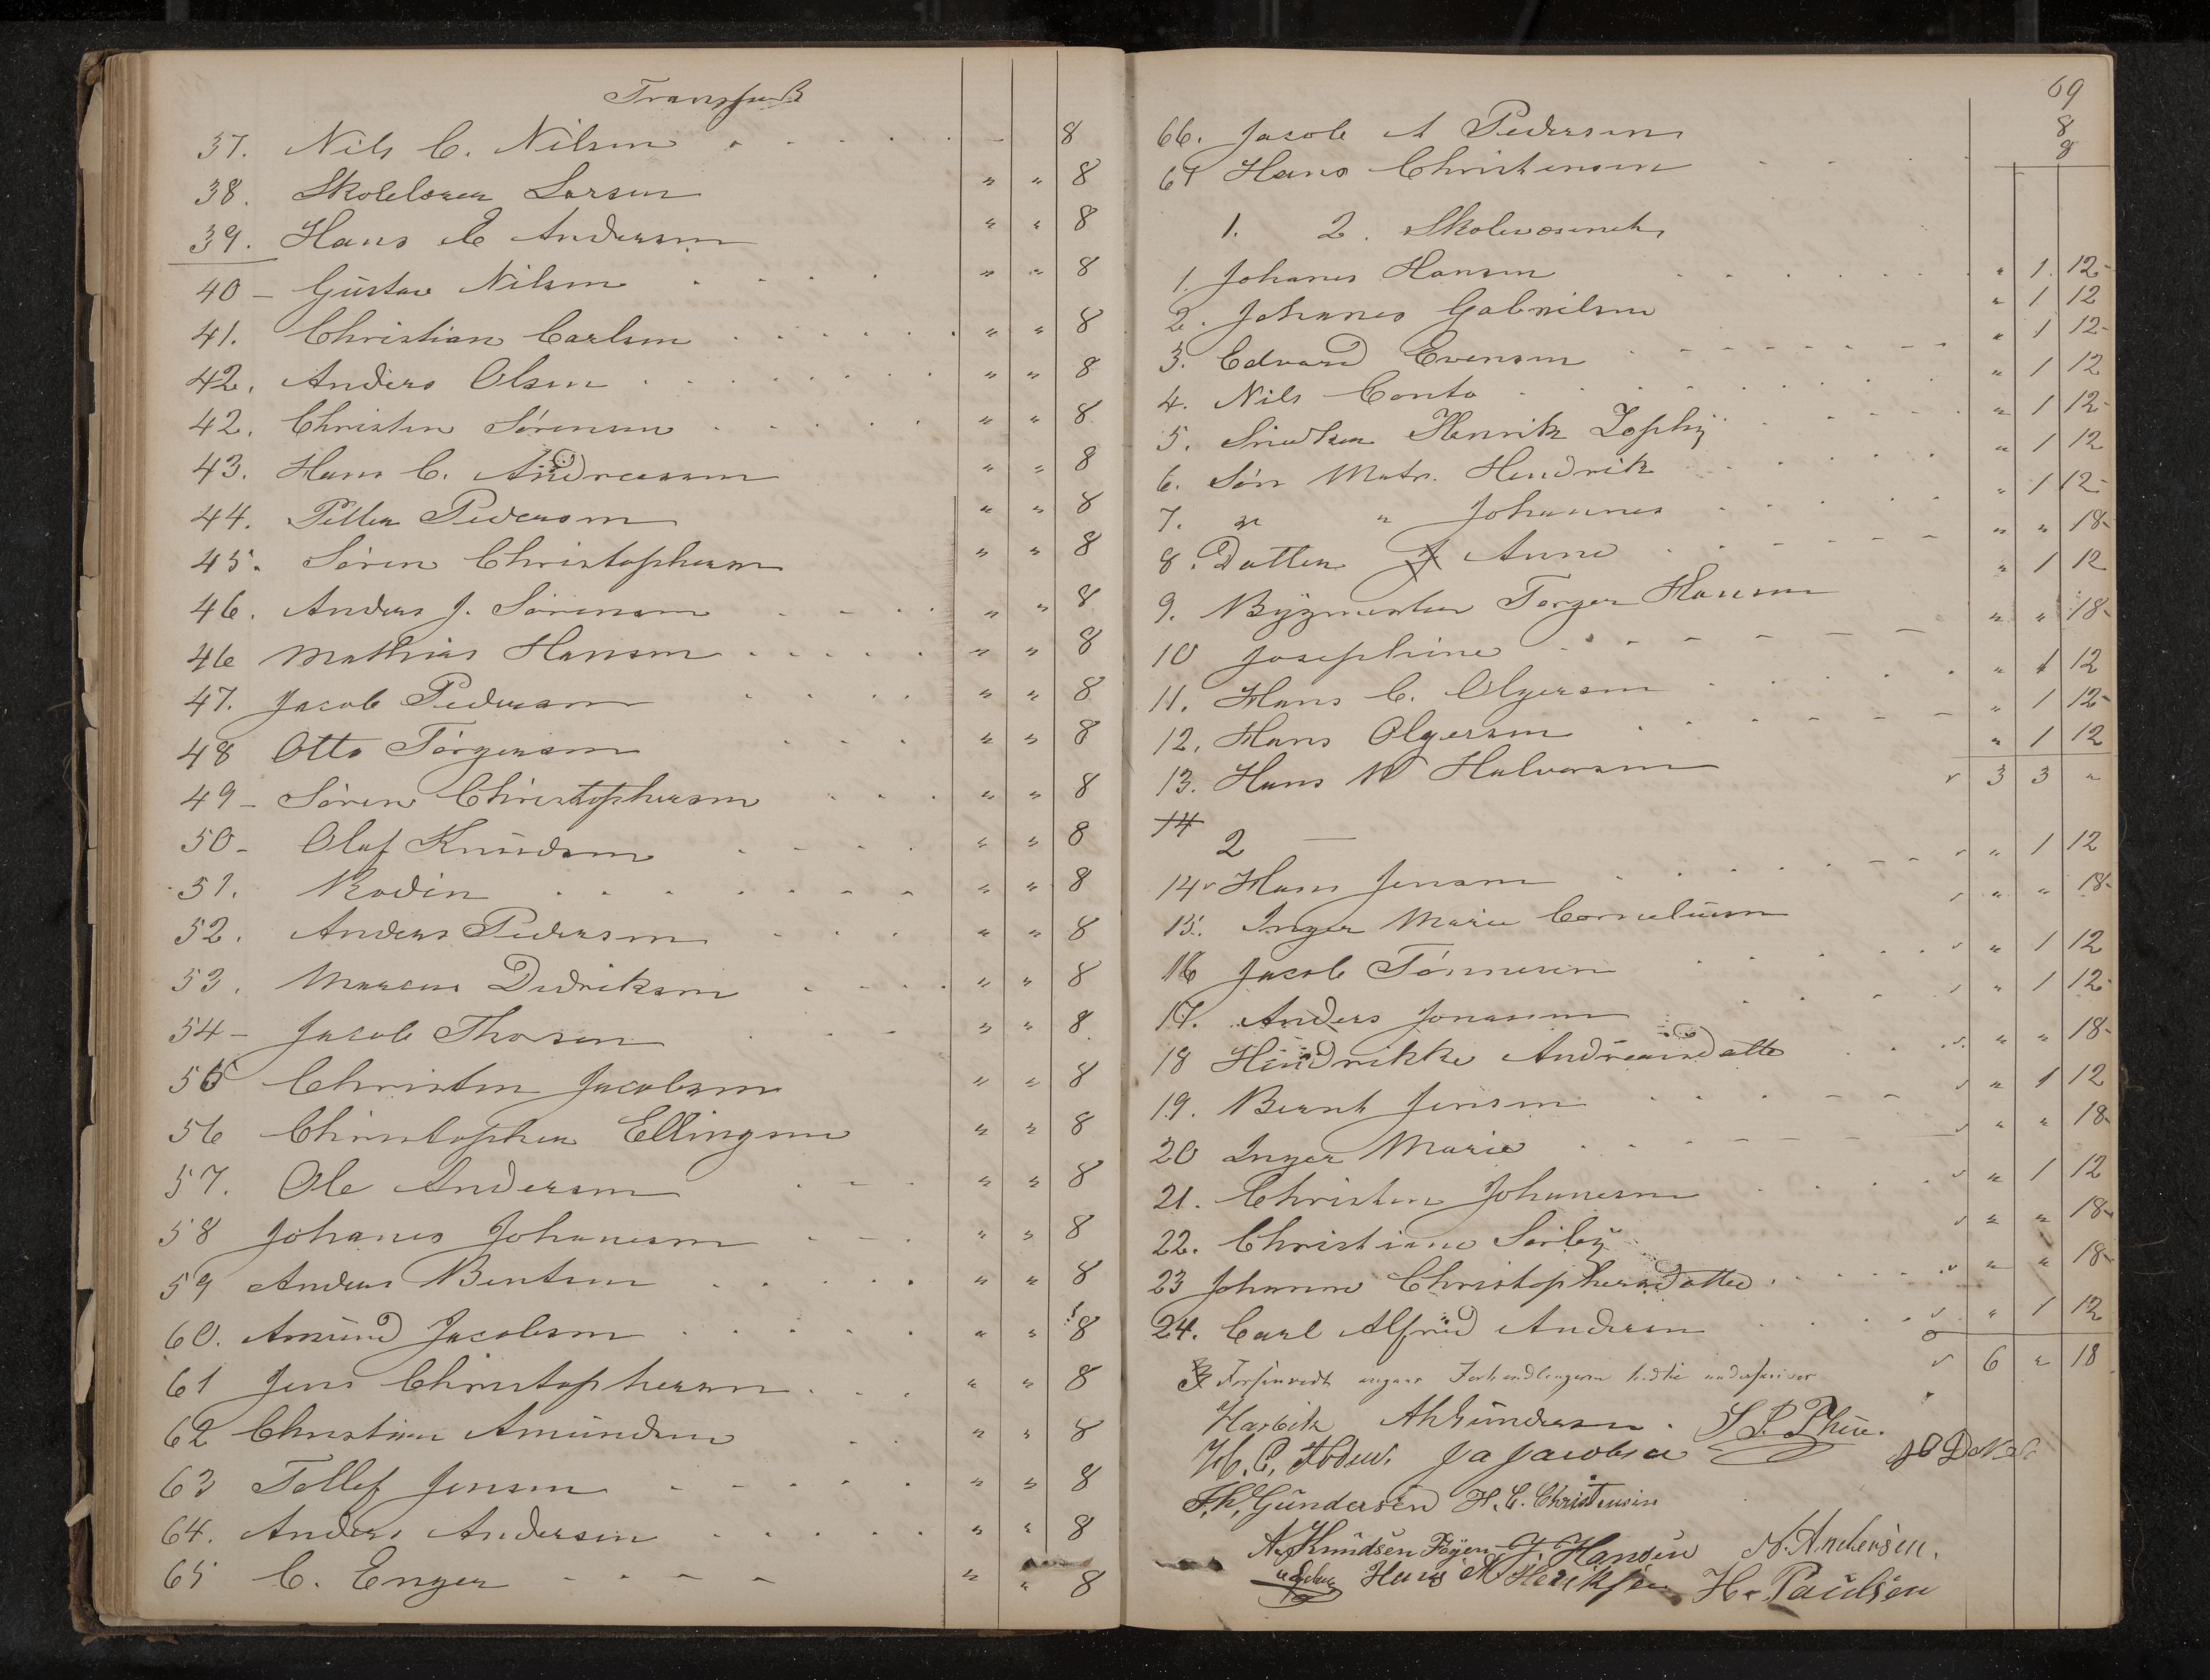 Transport
37. Nils C. Nilsen - 8
38. Skolelærer Larsen " " 8
39. Hans C Andersen " " 8
40 - Gustav Nilsen " " 8
41. Christian Carlsen " " 8
42. Anders Olsen " " 8
42. Christen Sørensen " " 8
43. Hans C. Andreassen " " 8
44. Petter Pedersen " " 8
45. Søren Christophersen " " 8
46. Anders J. Sørensen " " 8
46 Mathias Hansen " " 8
47. Jacob Pedersen " " 8
48 Otto Tørgersen " " 8
49 - Søren Christophersen " " 8
50 - Oluf Knudsen " " 8
51. Rodin " " 8
52. Anders Pedersen " " 8
53. Marcus Didriksen " " 8
54 - Jacob Thorsen " " 8
55 Christen Jacobsen " " 8
56 Christopher Ellingsen " " 8
57. Ole Andersen " " 8
58 Johanes Johanesen " " 8
59 Anders Bentsen " " 8
60. Amund Jacobsen " " 8
61 Jens Christophersen " " 8
62 Christian Amundsen " " 8
63 Tollef Jensen " " 8
64. Anders Andersen " " 8
65 C. Enger " " 8
69
66. Jacob A Pedersen 8
67 Hans Christensen 8
1. 2. Skolevæsenet
1. Johanes Hansen " 1. 12-
2. Johanes Gabrilsen " 1 12
3. Edvard Evensen " 1 12-
4. Nils Conto " 1 12
5. Snedker Henrik Zophy " 1 12-
6. Søn Matr. Hendrik " 1 12
7. " " Johannes " 1 12-
8. Datter Anne " " 18-
9. Bygmester Torger Hansen " 1 12
10 Josephine " " 18-
11. Hans C. Olgersen " 1 12
12. Hans Olgersen " 1 12-
13. Hans N Halvorsen " 1 12
3 3 "
14
2 —
14 Hans Jensen " 1 12
15. Inger Marie Corneliusen " " 18-
16 Jacob Tønnesen " 1 12
17. Anders Jonassen " 1 12-
18 Hendrikke Andreasdatter " " 18-
19. Bernt Jensen " 1 12
20 Inger Marie " " 18-
21. Christen Johanesen " 1 12
22. Christiane Sørby " " 18-
23 Johanne Christophersdatter " " 18-
24. Carl Alfred Andersen " 1 12
6 " 18
Forsaavidt angaar Forhandlingerne hidtil underskriver
Harbitz A Gundersen. S. P. Thue.
H. C. Ja Jacobsen
Th. Gundersen H. C. Christensen
A. Knudsen Føyen J. Hansen N. Andersen.
Hans A Heriksen H. Paulsen